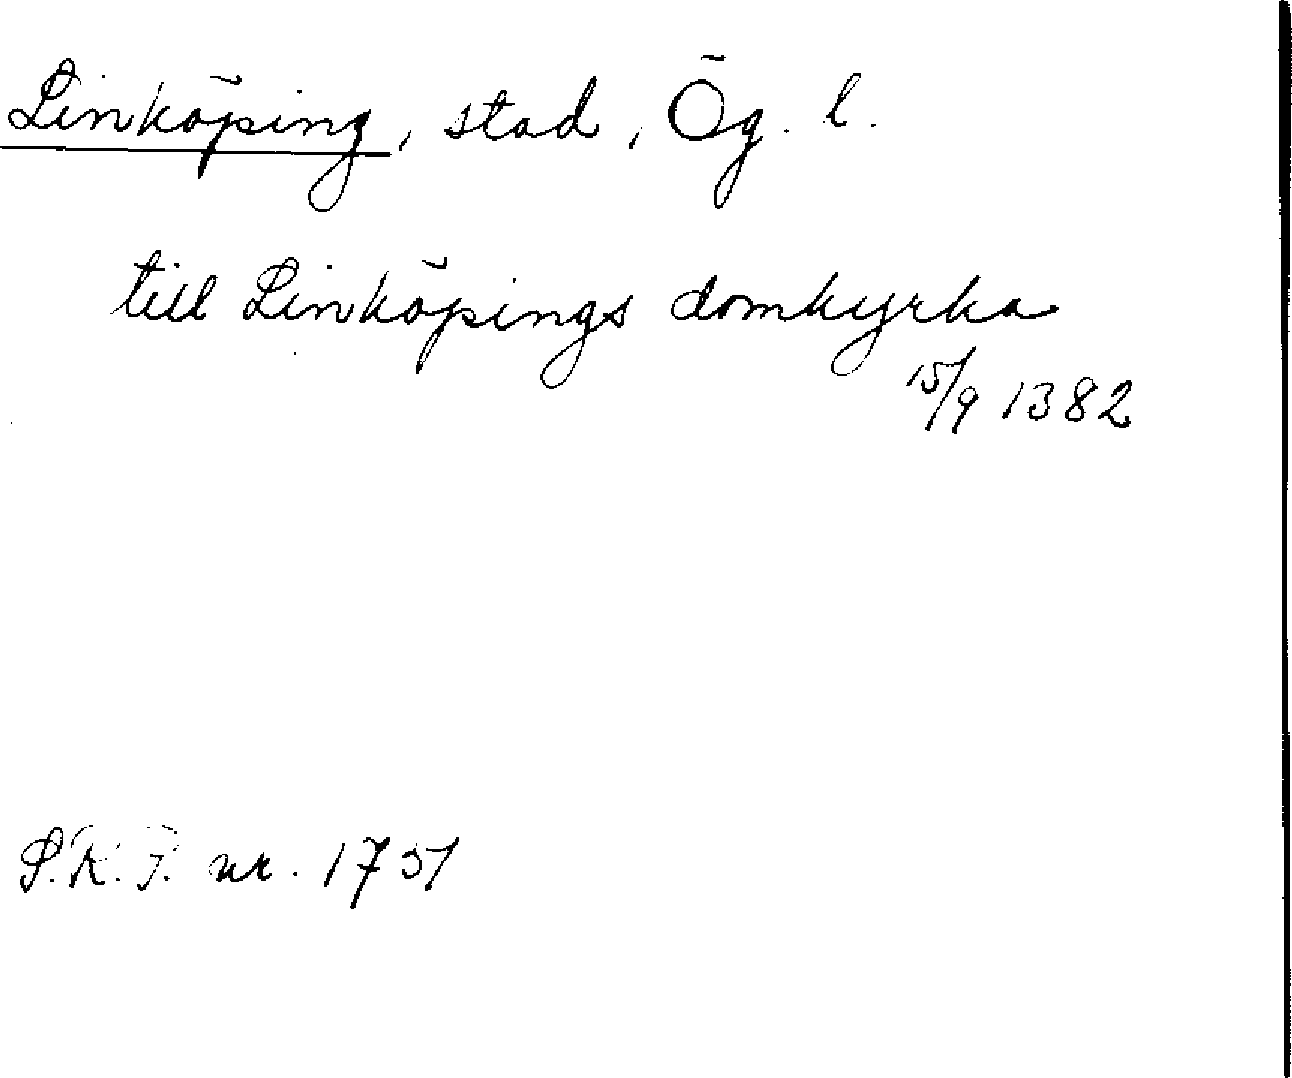 Linköping, stad, Ög. l.
till Linköpings domkyrka
15/9 1382
nr. 1751